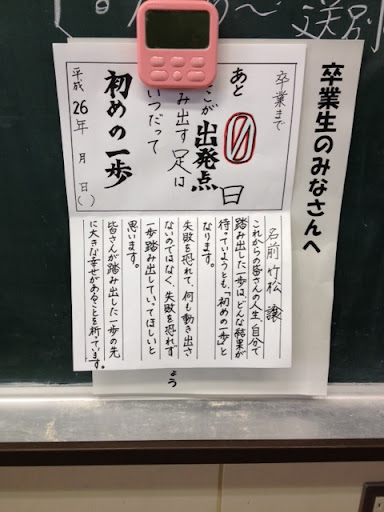 送別
卒業生のみなさんへ
卒業まで
あと
0日
こが出発点
み出す足は
いつだって
初めの一歩
平成26年 月 日( )
名前 竹松 譲
これからの皆さんの人生、自分で
踏み出した一歩は、どんな結果が
待っていようとも、「初めの一歩」と
なります。
失敗を恐れて、何も動き出さ
ないのではなく、失敗を恐れず
一歩踏み出していってほしいと
思います。
皆さんが踏み出した一歩の先
に大きな幸せがあることを祈っています。
ょう